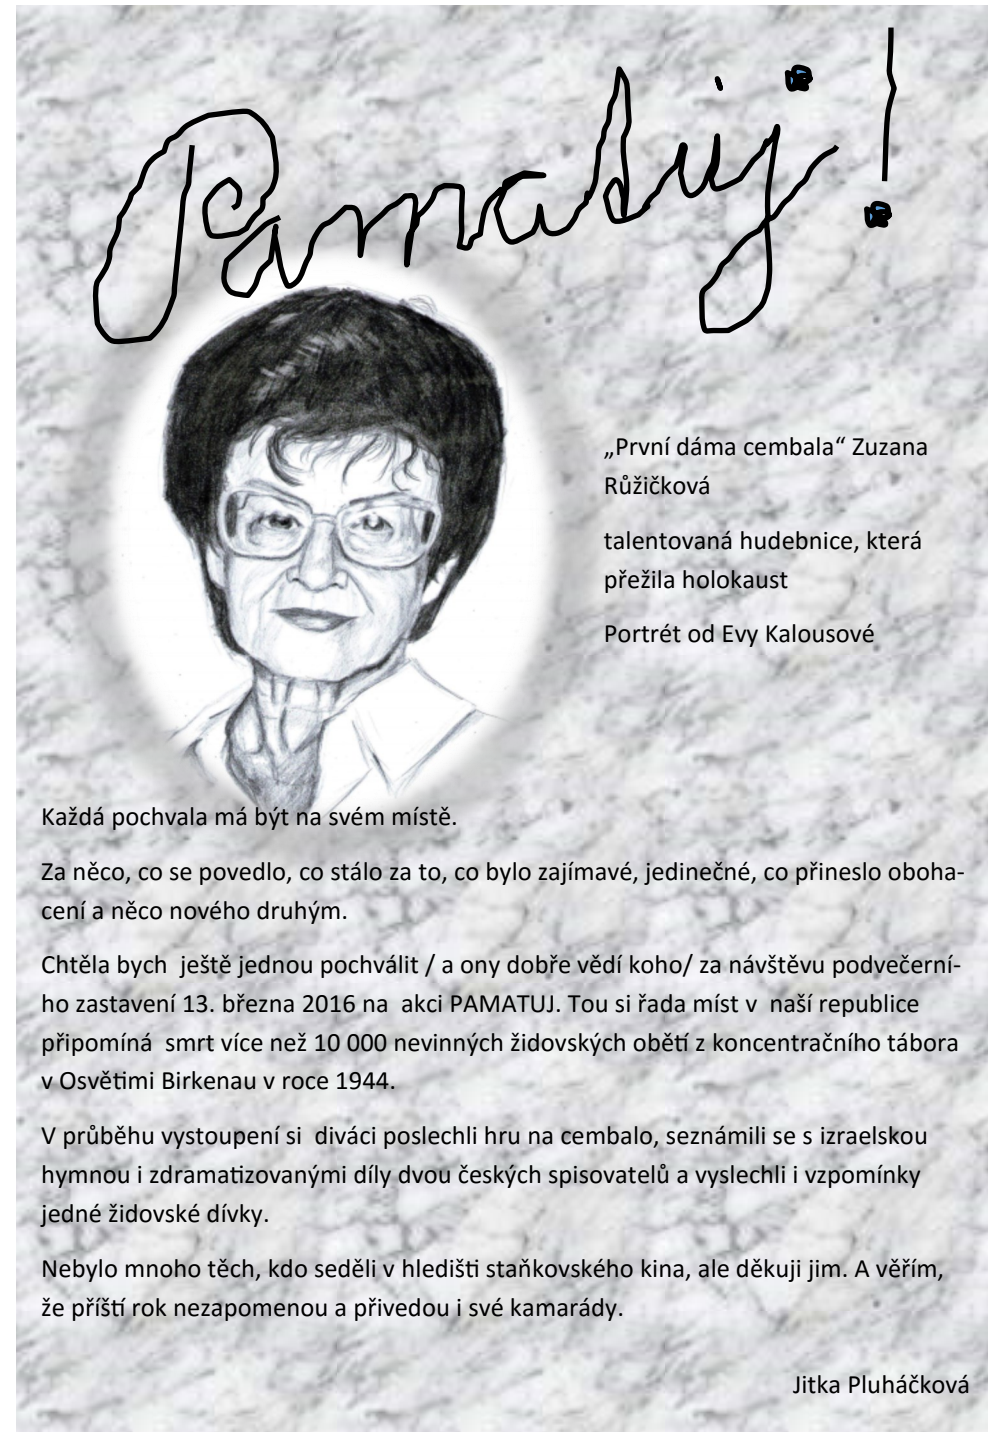 Pamatuj!
„První dáma cembala“ Zuzana
Růžičková
talentovaná hudebnice, která
přežila holokaust
Portrét od Evy Kalousové
Každá pochvala má být na svém místě.
Za něco, co se povedlo, co stálo za to, co bylo zajímavé, jedinečné, co přineslo oboha-
cení a něco nového druhým.
Chtěla bych  ještě jednou pochválit / a ony dobře vědí koho/ za návštěvu podvečerní-
ho zastavení 13. března 2016 na  akci PAMATUJ. Tou si řada míst v  naší republice
připomíná  smrt více než 10 000 nevinných židovských obětí z koncentračního tábora
v Osvětimi Birkenau v roce 1944.
V průběhu vystoupení si  diváci poslechli hru na cembalo, seznámili se s izraelskou
hymnou i zdramatizovanými díly dvou českých spisovatelů a vyslechli i vzpomínky
jedné židovské dívky.
Nebylo mnoho těch, kdo seděli v hledišti staňkovského kina, ale děkuji jim. A věřím,
že příští rok nezapomenou a přivedou i své kamarády.
Jitka Pluháčková